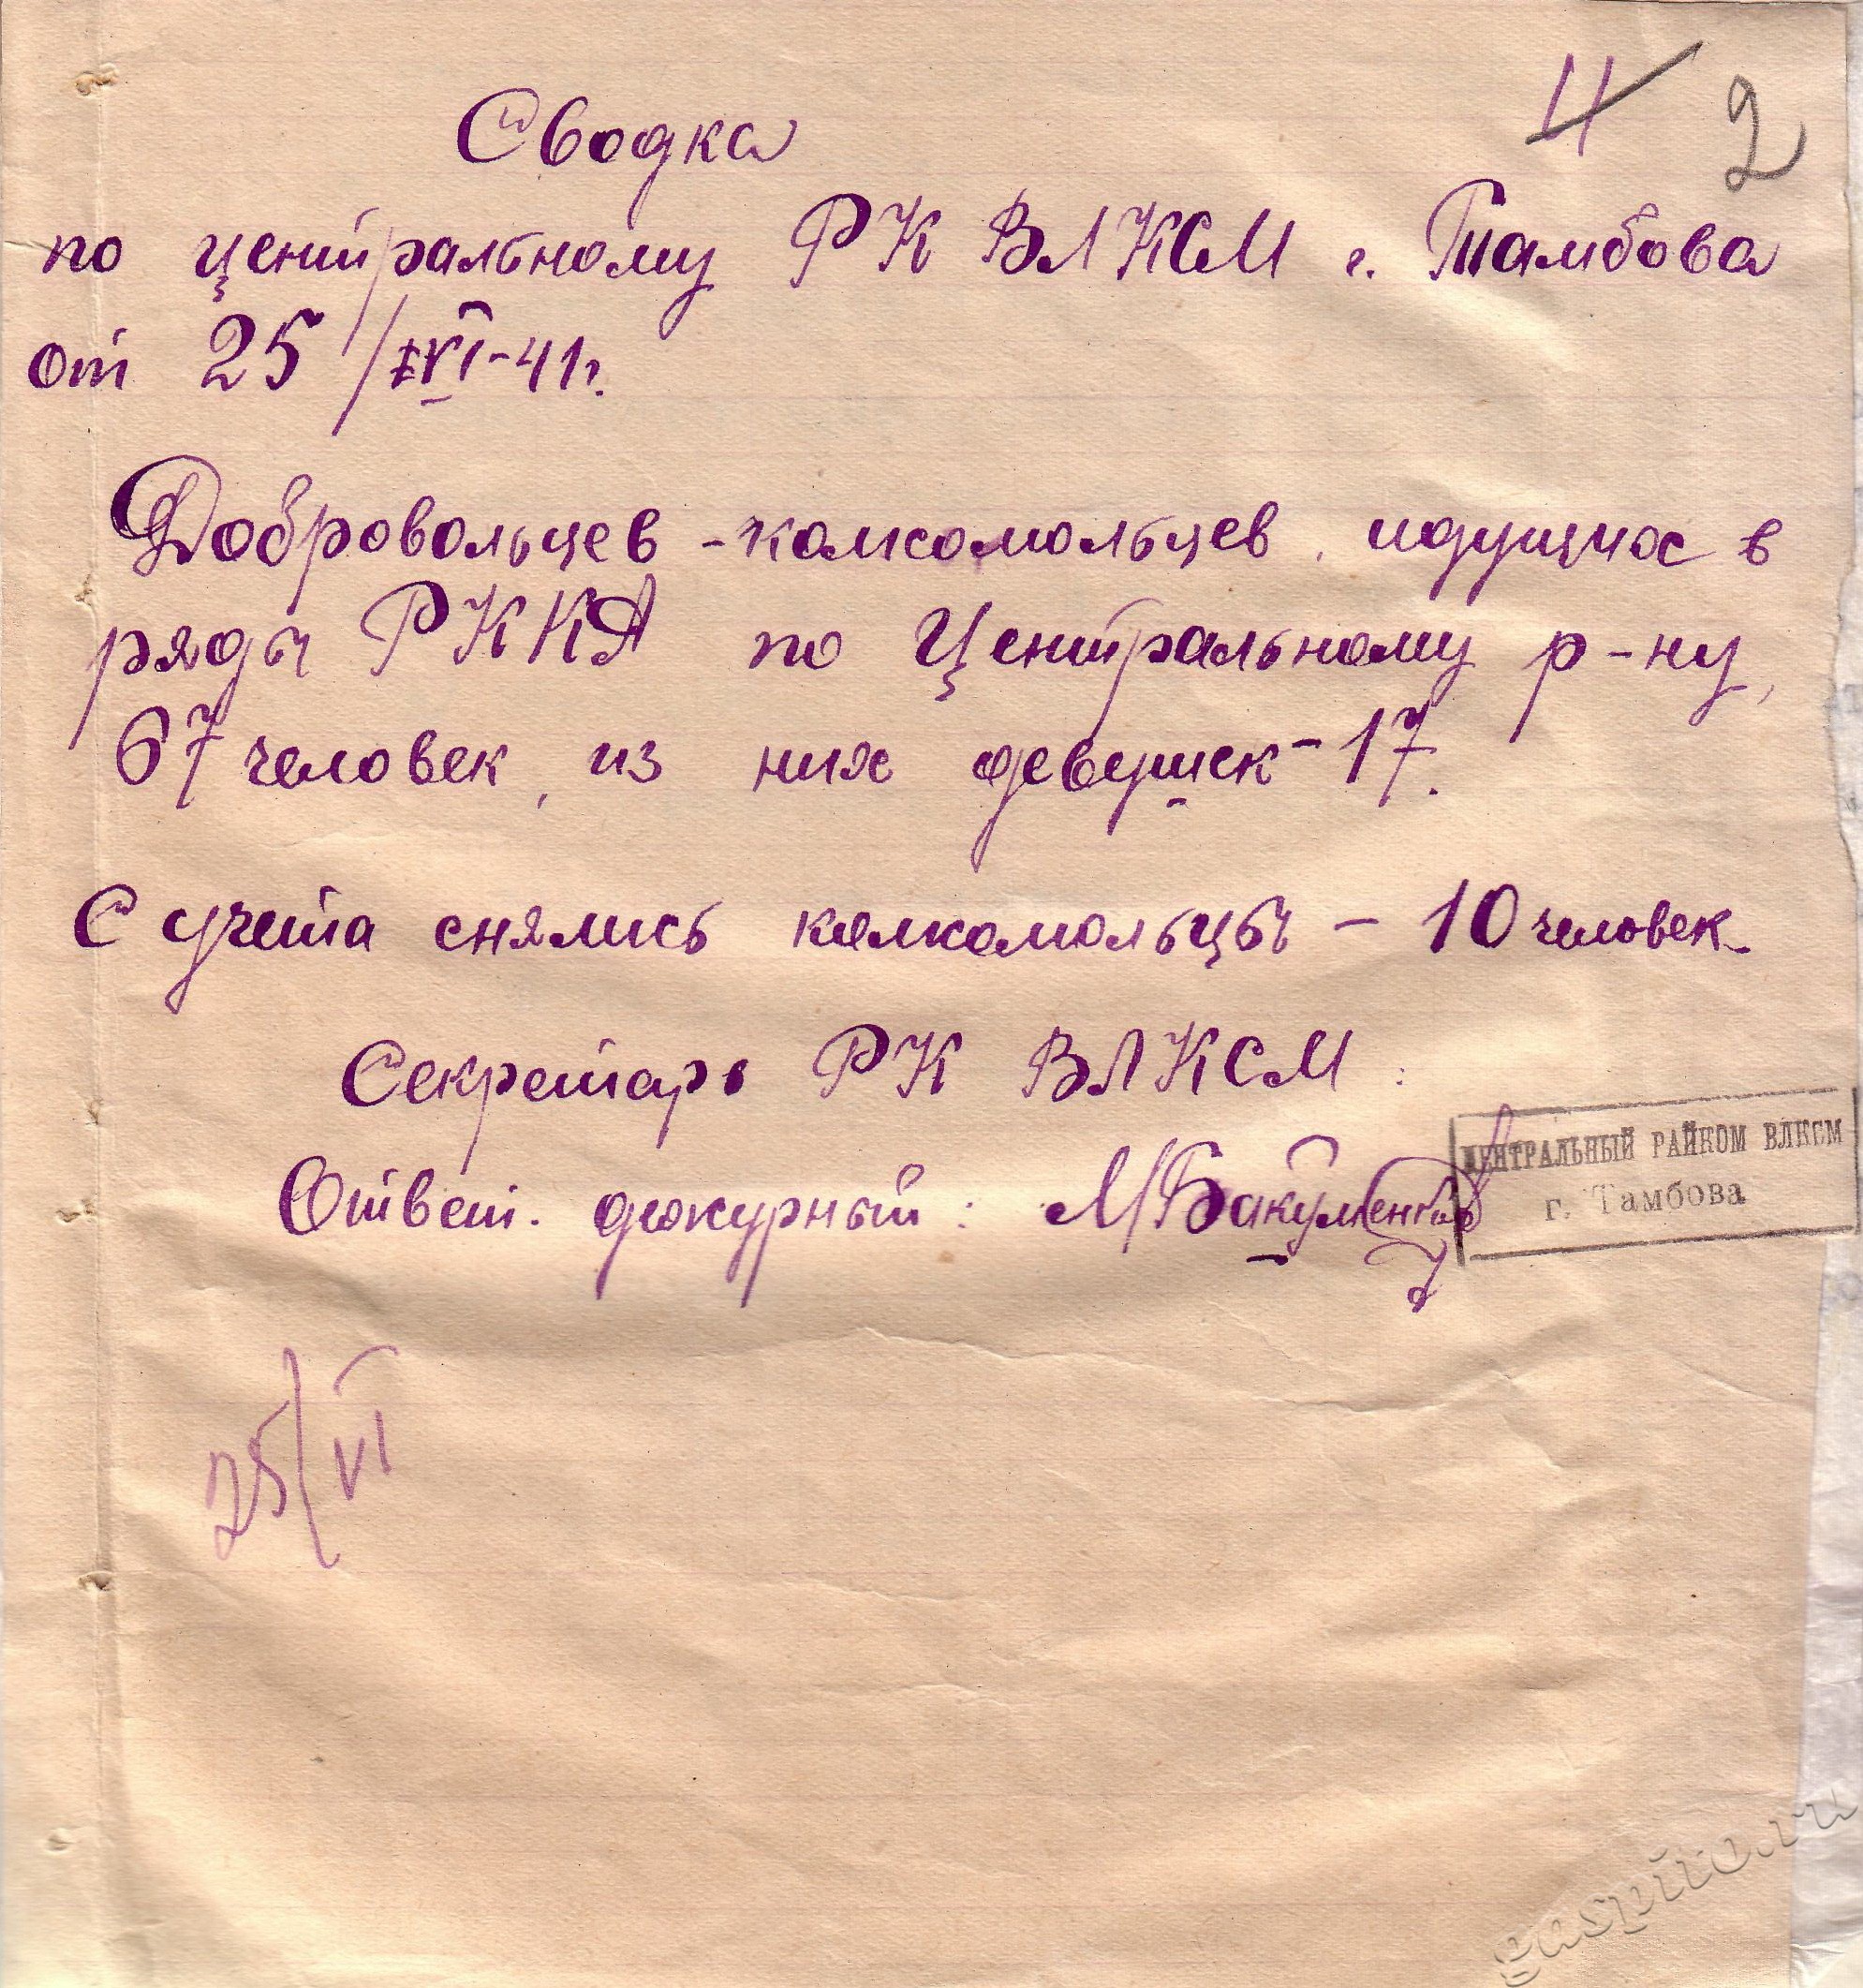 4 2
Сводка
по центральному РК ВЛКСМ г. Тамбова
от 25/VI-41г.
Добровольцев-комсомольцев, идущих в
ряды РККА по Центральному р-ну,
67 человек, из них девушек - 17.
С учета снялись комсомольцы - 10 человек
Секретарь РК ВЛКСМ:
Ответ. дежурный: М Бакумен
ЦЕНТРАЛЬНЫЙ РАЙКОМ ВЛКСМ
г. Тамбова
25/VI
gaspito.ru